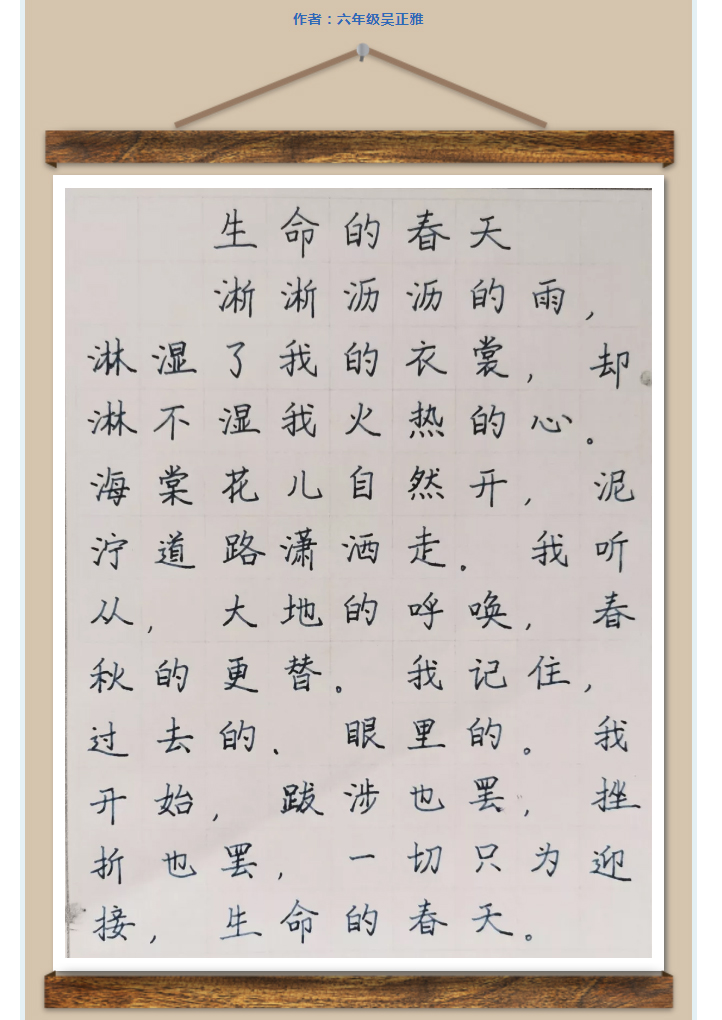 作者：六年级吴正雅
生命的春天
淅淅沥沥的雨，
淋湿了我的衣裳，却
淋不湿我火热的心。
海棠花儿自然开，泥
泞道路潇洒走。我听
从，大地的呼唤，春
秋的更替。我记住，
过去的、眼里的。我
开始，跋涉也罢，挫
折也罢，一切只为迎
接，生命的春天。